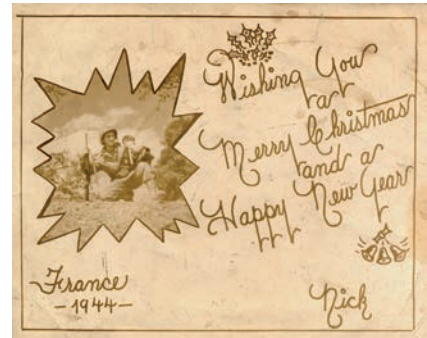 Wishing You
a
Merry Christmas
and a
Happy New Year
France
-1944-
Nick